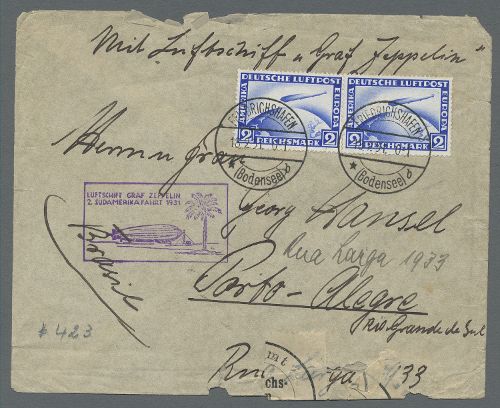 Mit Luftschiff „Graf Zeppelin“
DEUTSCHE LUFTPOST
AMERIKA
EUROPA
2 REICHSMARK 2
DEUTSCHE LUFTPOST
AMERIKA
EUROPA
2 REICHSMARK 2
FRIEDRICHSHAFEN
(Bodensee)
FRIEDRICHSHAFEN
(Bodensee)
Herrn
Georg Hansel
LUFTSCHIFF GRAF ZEPPELIN
2. SÜDAMERIKAFAHRT 1931
Rua Larga 1933
Brasil
Porto-Alegre
Rio Grande do Sul
# 423
Rua
ga 133
chs-